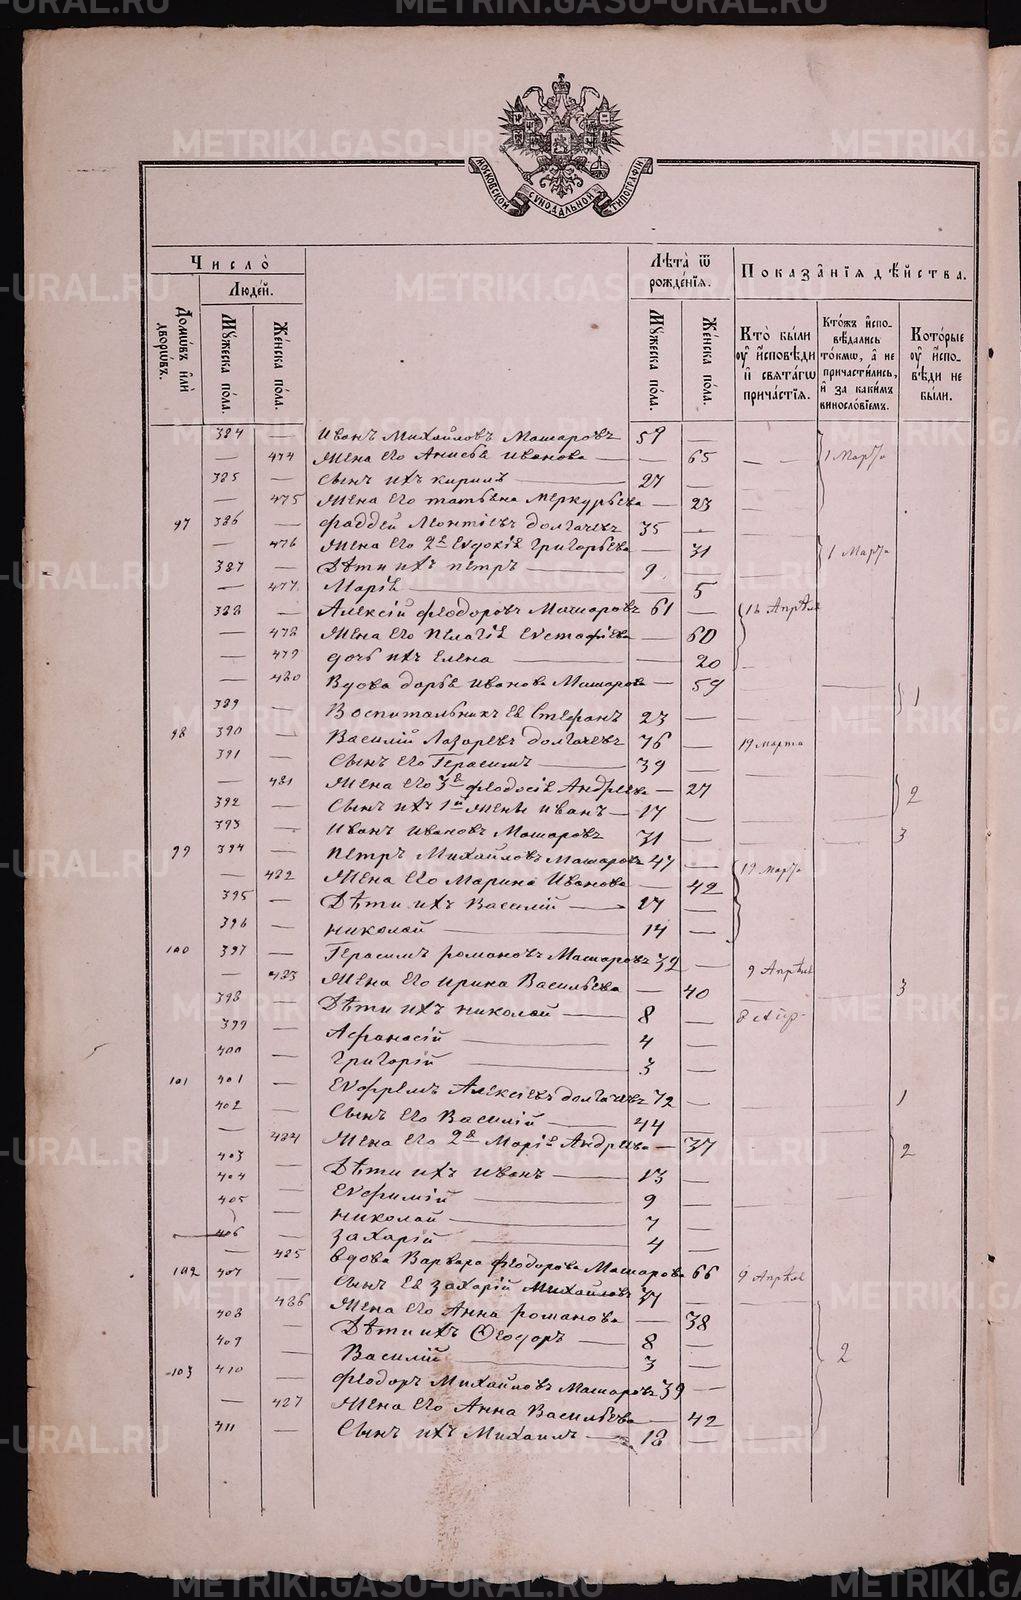 METRIKI.GASO-URAL.RU
МОСКОВСКОЙ СѴНОДАЛЬНОЙ ТИПОГРАФІИ
Число̀
Люде́й.
Домѡ́въ и҆лѝ дворѡ́въ.
Мꙋ́жеска по́ла.
Же́нска по́ла.
Лѣ́та ѿ рожде́нїѧ.
Мꙋ́жеска по́ла.
Же́нска по́ла.
Показа̂нїѧ дѣ́йства.
Кто̀ бы́ли
ᲂу҆ и҆сповѣ́ди
и҆ свѧта́гѡ
прича́стїѧ.
Кто́жъ и҆спо-
вѣ́дались
то́кмѡ, а҆ не
причасти́лись,
и҆ за каки́мъ
виносло́вїемъ.
Кото́рые
ᲂу҆ и҆спо-
вѣ́ди не
бы́ли.
384 — Иванъ Михайловъ Машаровъ 59 —
— 474 Жена его Анисья Иванова — 65 — 1 Марта
385 — Сынъ ихъ Кирилъ — 27 —
— 475 Жена его Татьяна Меркурьева — 23 —
97 386 — Фаддей Леонтіевъ Долгачевъ 35 —
— 476 Жена его 2я Евдокія Григорьева — 31 — 1 Марта
387 — Дѣти ихъ Петръ — 9 —
— 477 Марія — 5
388 — Алексій Феодоровъ Машаровъ 61 — Апрѣля
— 478 Жена его Пелагія Евстафіева — 60
— 479 дочь ихъ Елена — — 20 —
— 480 Вдова Дарья Иванова Машарова — 59 — — 1
389 — Воспитальникъ ея Стефанъ 23 —
98 390 — Василій Лазаревъ Долгачевъ 76 — 19 Марта
391 — Сынъ его Герасимъ — 39 —
— 481 Жена его 3я Феодосія Андреева — 27 — 2
392 — Сынъ ихъ 1й жены Иванъ — 17 —
393 — Иванъ Ивановъ Машаровъ 31 — — 3
99 394 — Петръ Михайловъ Машаровъ 47 — 19 Марта
— 482 Жена его Марина Иванова — 42
395 — Дѣти ихъ Василій — 27 —
396 — Николай — 14 —
100 397 — Герасимъ Романовъ Машаровъ 39 — 9 Апрѣля
— 483 Жена его Ирина Васильева — 40 — 3
398 — Дѣти ихъ Николай — 8 —
399 — Афанасій — 4 —
400 — Григорій — 3 —
101 401 — Евфремъ Алексіевъ Долгачевъ 72 — — 1
402 — Сынъ его Василій — 44 —
— 484 Жена его 2я Марія Андреева — 37 — 2
403 — Дѣти ихъ Иванъ — 13 —
404 — Евфимій — 9 —
405 — Николай — 7 —
406 — Захарій — 4 —
— 485 Вдова Варвара Феодорова Машарова 66 9 Апрѣля
102 407 — Сынъ ея Захарій Михайловъ 37 —
— 486 Жена его Анна Романова — 38 —
408 — Дѣти ихъ Ѳеодоръ — 8 —
409 — Василій — 3 — 2
103 410 — Феодоръ Михайловъ Машаровъ 39 —
— 487 Жена его Анна Васильева — 42
411 — Сынъ ихъ Михаилъ — 18 —